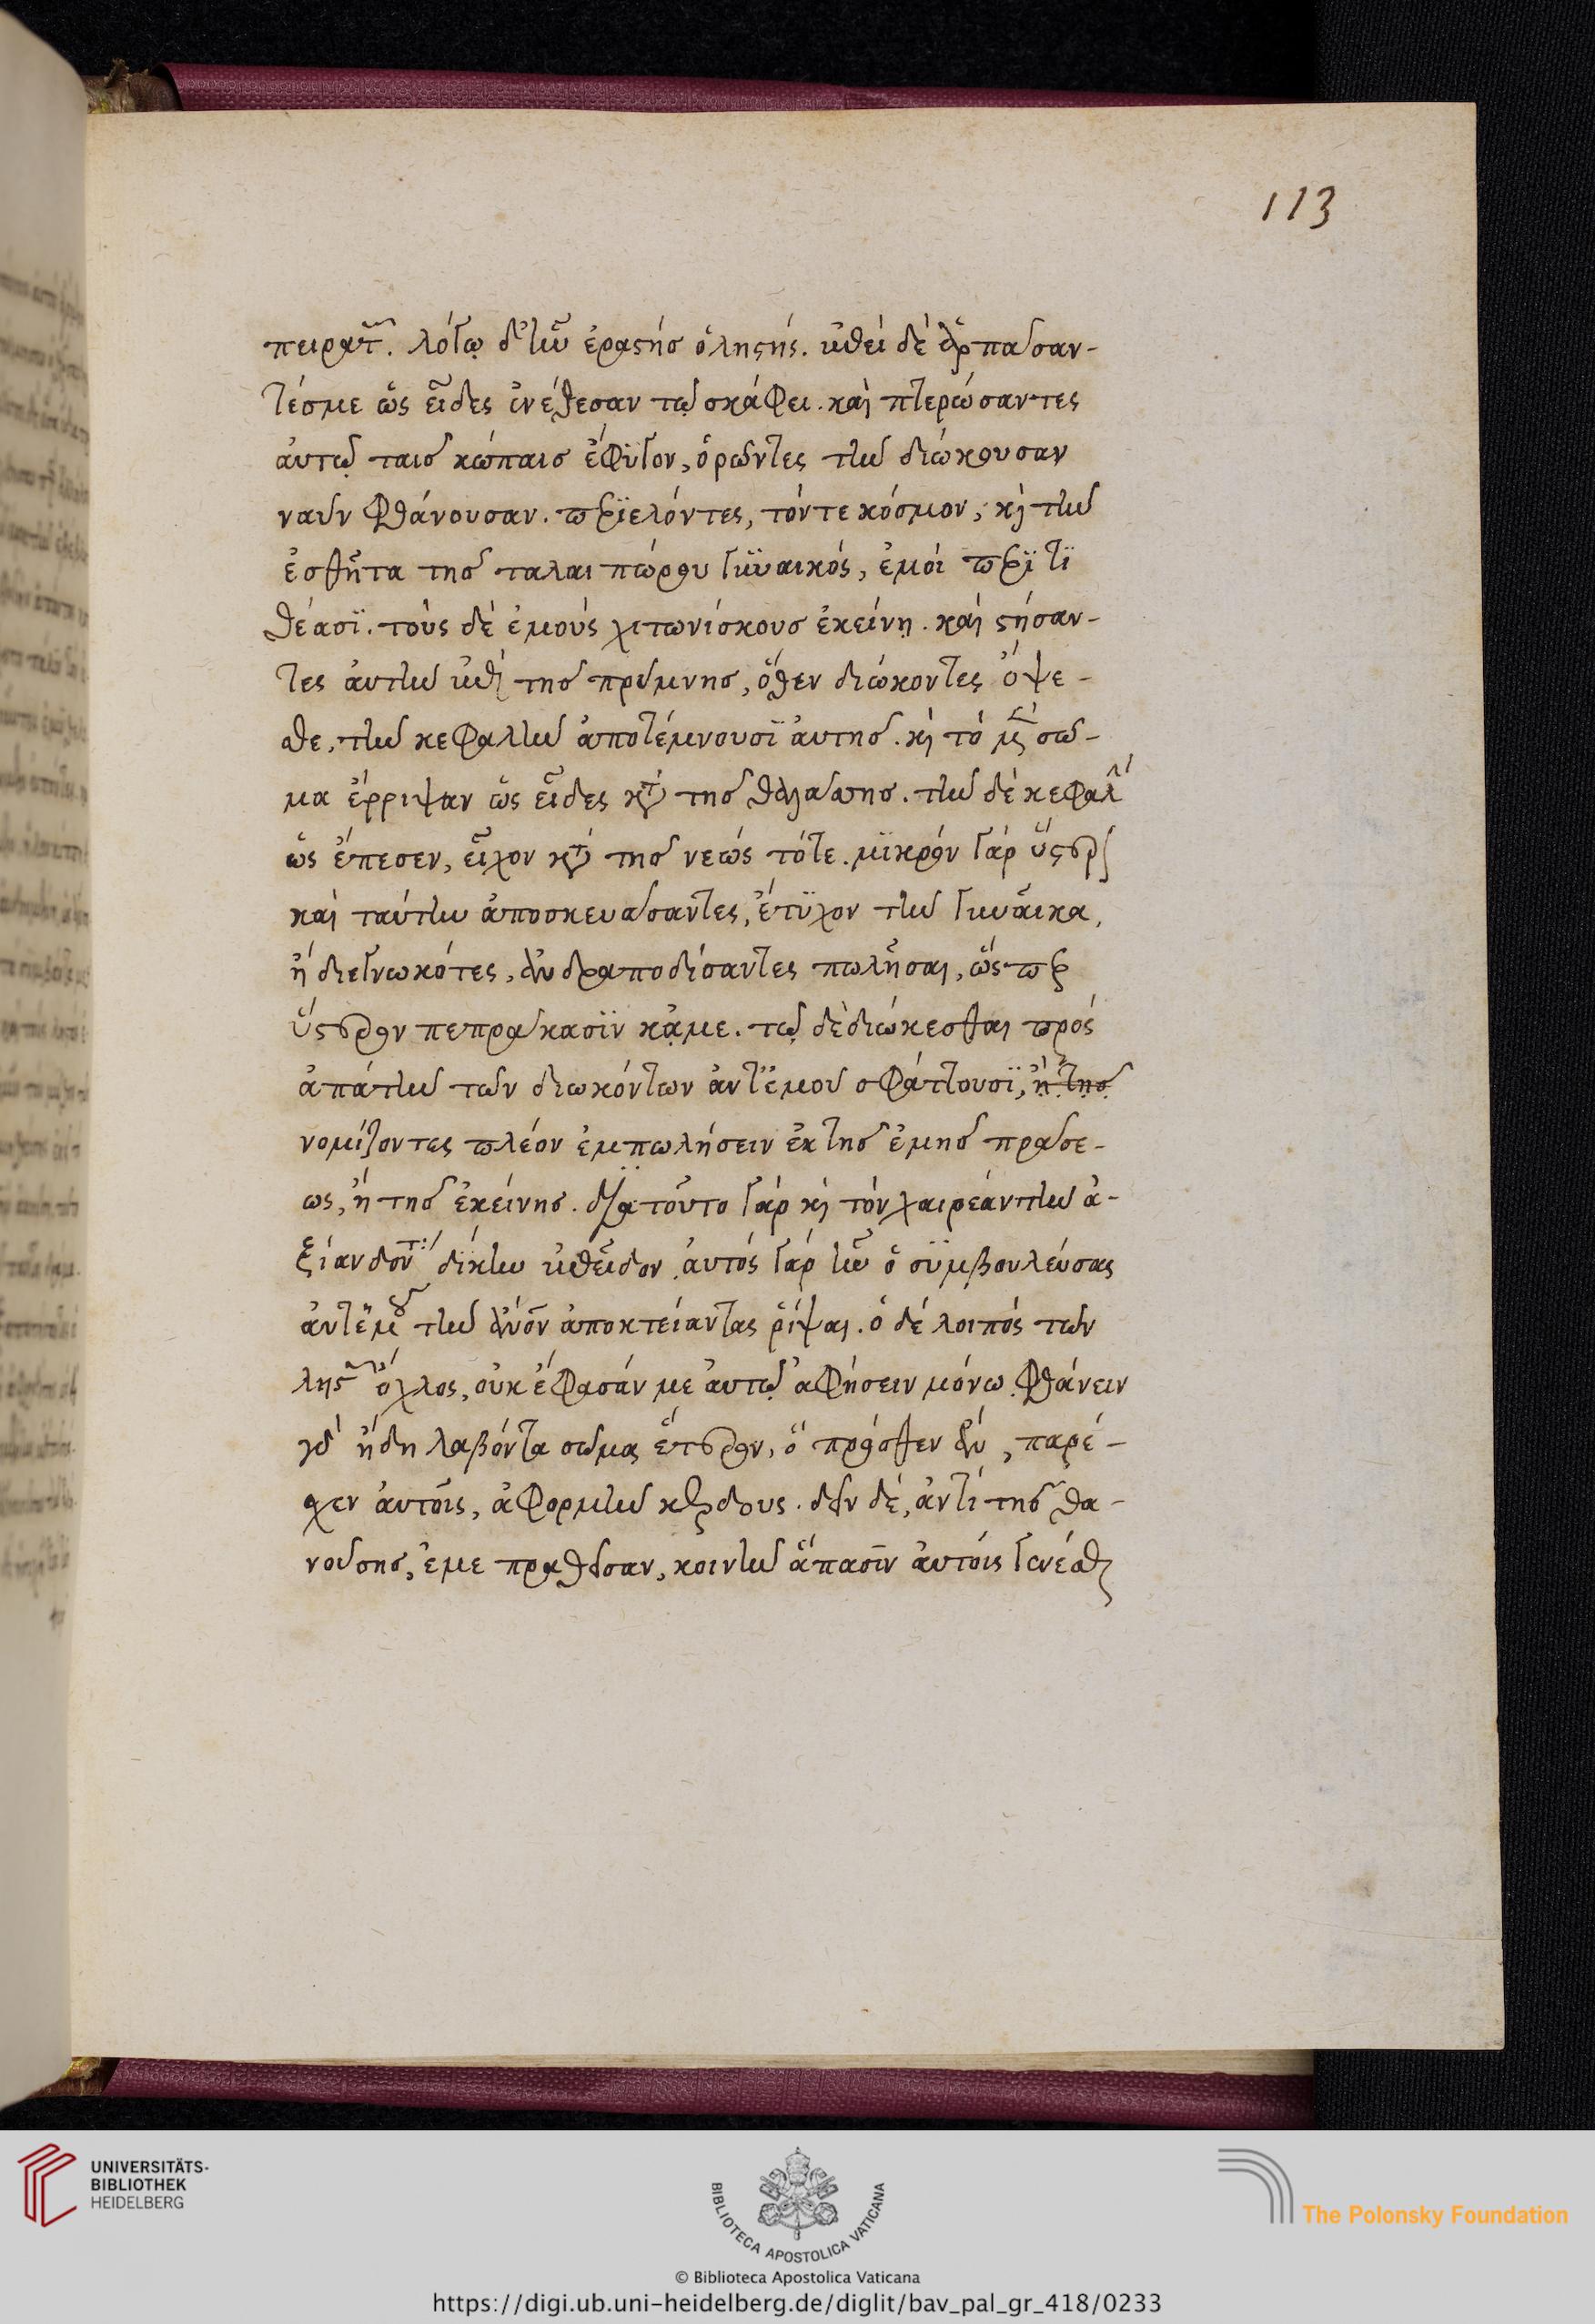 113
πειρατῶν. λόγῳ δ' ἦν ἐραστὴς ὁ λῃστής. ἐπεὶ δὲ ἁρπάσαν-
τές με ὡς εἶδες ἐνέθεσαν τῷ σκάφει. καὶ πτερώσαντες
αὐτῷ ταῖς κώπαις ἔφυγον, ὁρῶντες τὴν διώκουσαν
ναῦν φθάνουσαν. περιελόντες, τόν τε κόσμον, καὶ τὴν
ἐσθῆτα τῆς ταλαιπώρου γυναικός, ἐμοὶ περιτι
θέασι. τοὺς δὲ ἐμοὺς χιτωνίσκους ἐκείνῃ. καὶ στήσαν-
τες αὐτὴν ἐπὶ τῆς πρύμνης, ὅθεν διώκοντες ὄψε-
σθε, τὴν κεφαλὴν ἀποτέμνουσι αὐτῆς. καὶ τὸ μὲν σῶ-
μα ἔρριψαν ὡς εἶδες κατὰ τῆς θαλάσσης. τὴν δὲ κεφαλὴν
ὡς ἔπεσεν, εἶχον κατὰ τῆς νεὼς τότε. μικρὸν γὰρ ὕστερον
καὶ ταύτην ἀποσκευάσαντες, ἔτυχον τὴν γυναῖκα,
ἢ διεγνωκότες, ἀνδραποδίσαντες πωλῆσαι, ὥσπερ
ὕστερον πεπράκασιν κἀμέ. τῷ δὲ διώκεσθαι πρὸς
ἀπάτην τῶν διωκόντων ἀντ' ἐμοῦ σφάττουσι, ἢ τῆς
νομίζοντες πλέον ἐμπωλήσειν ἐκ τῆς ἐμῆς πράσε-
ως, ἢ τῆς ἐκείνης. διὰ τοῦτο γὰρ καὶ τὸν χαιρέαν τὴν ἀ-
ξίαν δόντα δίκην ἐπεῖδον. αὐτὸς γὰρ ἦν ὁ συμβουλεύσας
ἀντ' ἐμοῦ τὴν ἄνον ἀποκτείαντας ῥίψαι. ὁ δὲ λοιπὸς τῶν
λῃστῶν ὄχλος, οὐκ ἔφασάν με αὐτῷ ἀφήσειν μόνω. φθάνειν
γὰρ ἤδη λαβόντα σῶμα ἕτερον, ὃ πραθὲν ἂν, παρέ-
χεν αὐτοῖς, ἀφορμὴν κέρδους. δεῖν δέ, ἀντὶ τῆς θα-
νούσης, ἐμὲ πραθεῖσαν, κοινὴν ἅπασιν αὐτοῖς γενέσθαι
UNIVERSITÄTS-
BIBLIOTHEK
HEIDELBERG
BIBLIOTECA APOSTOLICA VATICANA
© Biblioteca Apostolica Vaticana
The Polonsky Foundation
https://digi.ub.uni-heidelberg.de/diglit/bav_pal_gr_418/0233